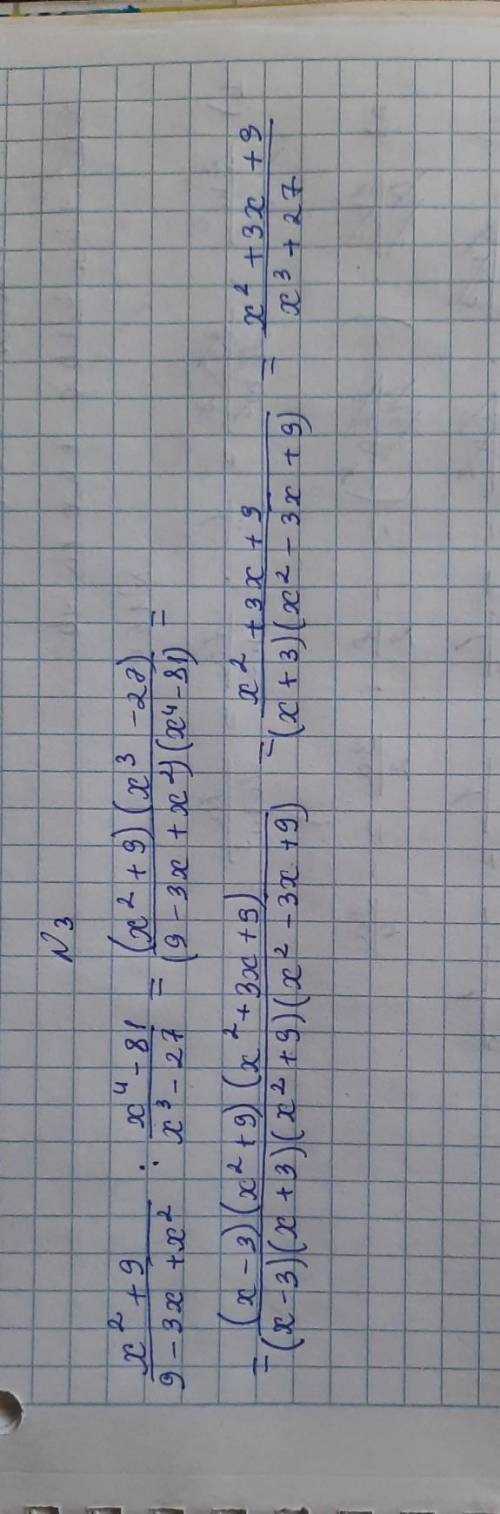 N3
x² + 9 / 9 - 3x + x² : x⁴ - 81 / x³ - 27 = (x² + 9)(x³ - 27) / (9 - 3x + x²)(x⁴ - 81) =
= (x - 3)(x² + 9)(x² + 3x + 9) / (x - 3)(x + 3)(x² + 9)(x² - 3x + 9) = x² + 3x + 9 / (x + 3)(x² - 3x + 9) = x² + 3x + 9 / x³ + 27